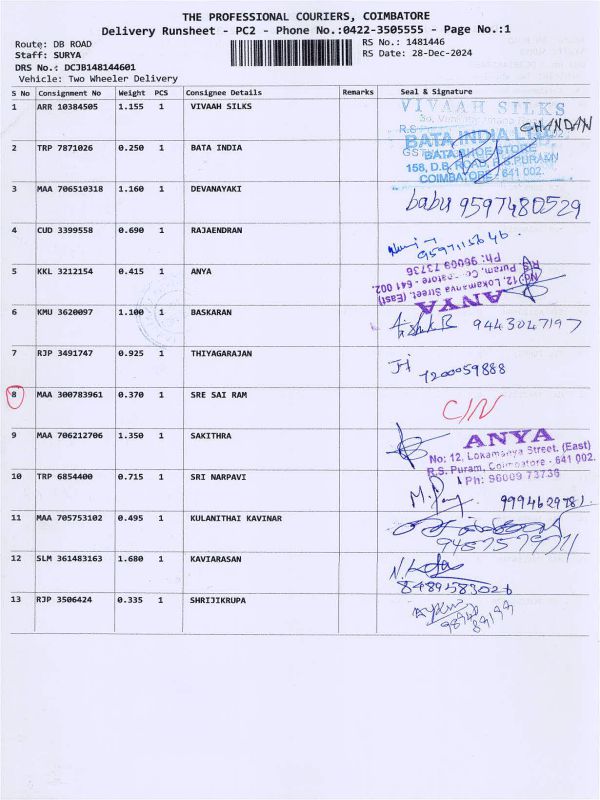 THE PROFESSIONAL COURIERS, COIMBATORE
Delivery Runsheet - PC2 - Phone No.:0422-3505555 - Page No.:1
Route: DB ROAD
Staff: SURYA
DRS No.: DCJB148144601
Vehicle: Two Wheeler Delivery
RS No.: 1481446
RS Date: 28-Dec-2024
S No Consignment No Weight PCS Consignee Details Remarks Seal & Signature
1 ARR 10384505 1.155 1 VIVAAH SILKS
VIVAAH SILKS
CHANDAN
2 TRP 7871026 0.250 1 BATA INDIA
BATA INDIA LTD.
BATA SHOE STORE
158, D.B. ROAD, R.S.PURAM
COIMBATORE - 641 002.
3 MAA 706510318 1.160 1 DEVANAYAKI
babu 9597480529
4 CUD 3399558 0.690 1 RAJAENDRAN
5 KKL 3212154 0.415 1 ANYA
ANYA
No: 12, Lokamanya Street, (East)
R.S. Puram, Coimbatore - 641 002.
Ph: 96009 73736
6 KMU 3620097 1.100 1 BASKARAN
9443047197
7 RJP 3491747 0.925 1 THIYAGARAJAN
7200059888
8 MAA 300783961 0.370 1 SRE SAI RAM
C/N
9 MAA 706212706 1.350 1 SAKITHRA
ANYA
No: 12, Lokamanya Street. (East)
R.S. Puram, Coimbatore - 641 002.
Ph: 96009 73736
10 TRP 6854400 0.715 1 SRI NARPAVI
9994629781
11 MAA 705753102 0.495 1 KULANITHAI KAVINAR
12 SLM 361483163 1.680 1 KAVIARASAN
8489583026
13 RJP 3506424 0.335 1 SHRIJIKRUPA